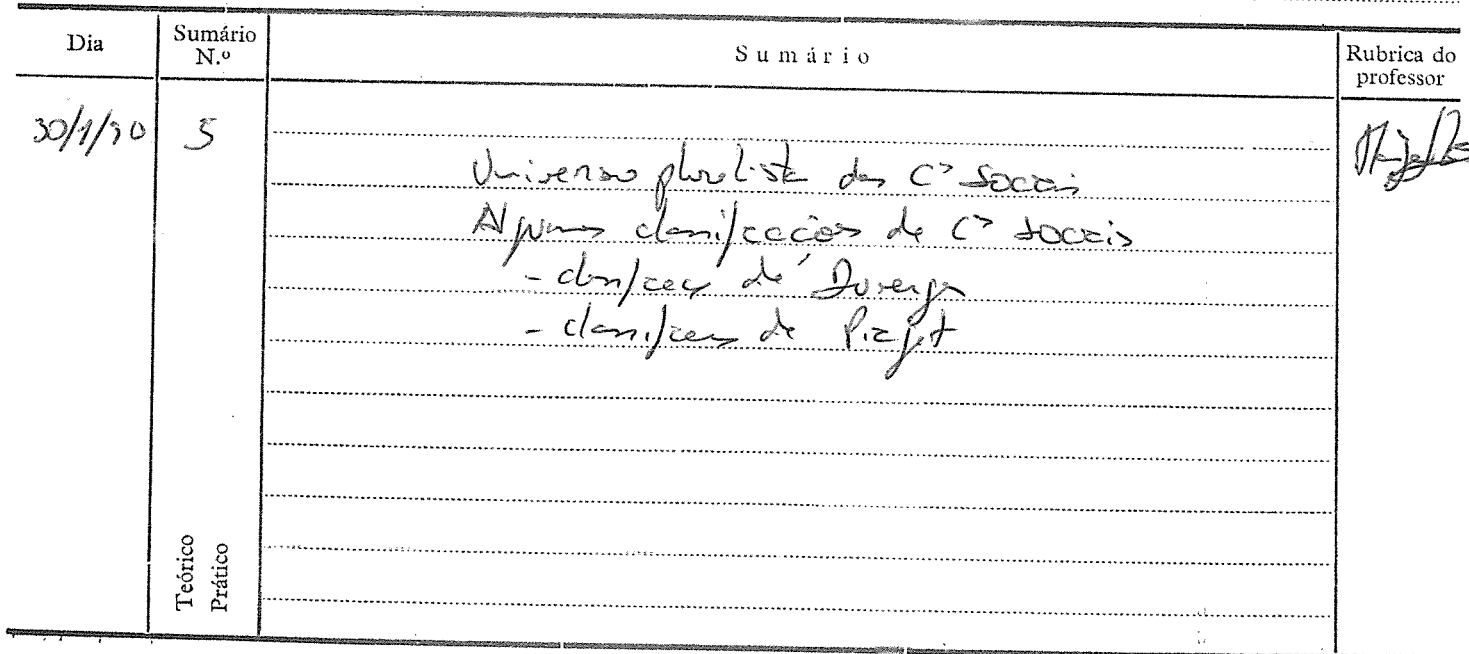 Dia
Sumário N.º
Sumário
Rubrica do professor
30/1/90 5
Universo pluralista das C^as Sociais
Algumas classificações de C^as Sociais
- classificação de Duverger
- classificação de Piaget
Teórico
Prático